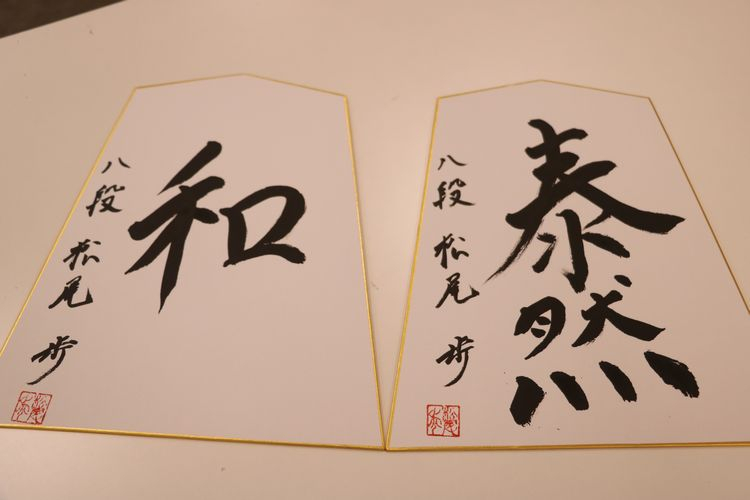 泰然
八段 松尾 歩
和
八段 松尾 歩